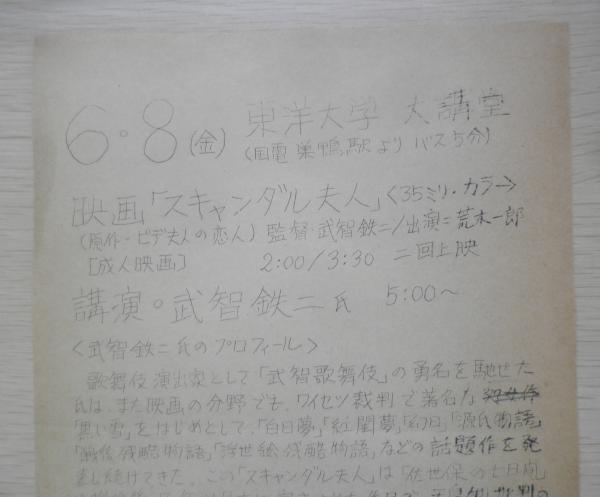 6・8(金) 東洋大学 大講堂
(国電巣鴨駅より バス5分)
映画「スキャンダル夫人」<35ミリ・カラー>
(原作・ビデ夫人の恋人) 監督・武智鉄二/出演=荒木一郎
[成人映画] 2:00/3:30 二回上映
講演。武智鉄二氏 5:00〜
<武智鉄二氏のプロフィール>
歌舞伎演出家として「武智歌舞伎」の勇名を馳せた
氏は、また映画の分野でも、ワイセツ裁判で著名な
「黒い雪」をはじめとして、「白日夢」「紅閨夢」「幻日」「源氏物語」
「戦後残酷物語」「浮世絵残酷物語」などの話題作を発
表し続けてきた。この「スキャンダル夫人」は「佐世保の